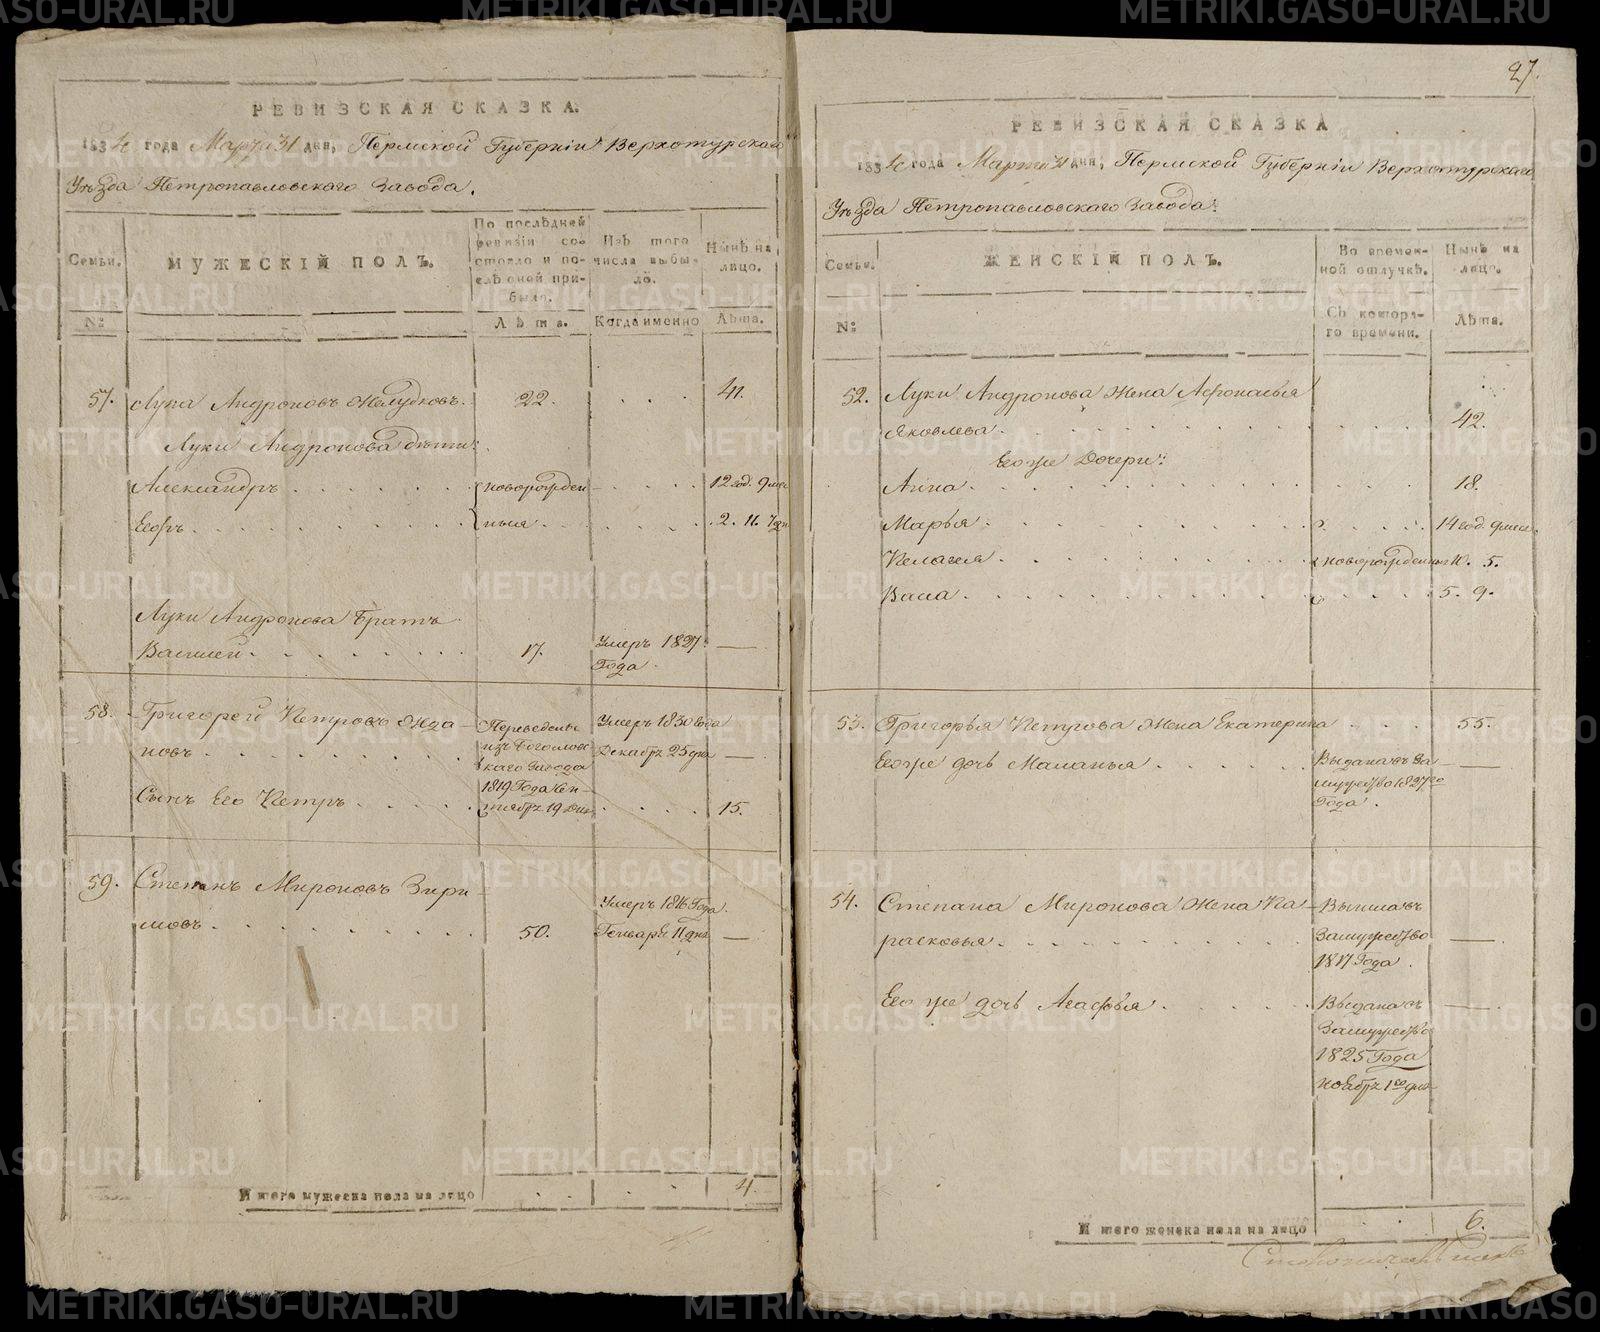 РЕВИЗСКАЯ СКАЗКА.
1834 года Марта 31 дня, Пермской Губерніи Верхотурскаго
Уѣзда Петропавловскаго Завода.
Семьи.
МУЖЕСКІЙ ПОЛЪ.
По послѣдней ревизіи состояло и послѣ оной прибыло.
Изъ того числа выбыло.
Нынѣ на лицо.
№
Лѣта.
Когда именно
Лѣта.
57. Лука Андроновъ Желудковъ. 22. 41.
Луки Андронова дѣти:
Александръ новорожден- 12 год. 9 мес
Егоръ ныя 2. 11. 7 дн
Луки Андронова Братъ
Василей 17. Умеръ 1827 Года.
58. Григорей Петровъ Жда-
новъ
Переведены изъ Богословскаго Завода 1819 Года Сентября 19 Дня
Умеръ 1830 года Декабря 25 дня
Сынъ Его Петръ 15.
59. Степанъ Мироновъ Зыря-
новъ 50.
Умеръ 1816 Года.
Генваря 11 дня
Итого мужеска пола на лицо 4.
27.
РЕВИЗСКАЯ СКАЗКА
1834 года Марта 31 дня, Пермской Губерніи Верхотурскаго
Уѣзда Петропавловскаго Завода.
Семьи.
ЖЕНСКІЙ ПОЛЪ.
Во временной отлучкѣ.
Нынѣ на лицо.
№
Съ котораго времени.
Лѣта.
52. Луки Андронова Жена Афонасья
Яковлева 42.
Его же Дочери:
Анна 18.
Марья 14 год. 9 мес.
Пелагея новорожденныя 10. 5.
Васа 5. 9.
53. Григорья Петрова Жена Екатерина 55.
Его же дочь Маланья
Выдана въ Замужество 1827го Года.
54. Степана Миронова Жена Па-
расковья
Вышла въ
Замужество
1817 Года.
Его же дочь Агафья
Выдана въ
Замужество
1825 Года
ноября 1го дня
Итого женска пола на лицо 6.
METRIKI.GASO-URAL.RU